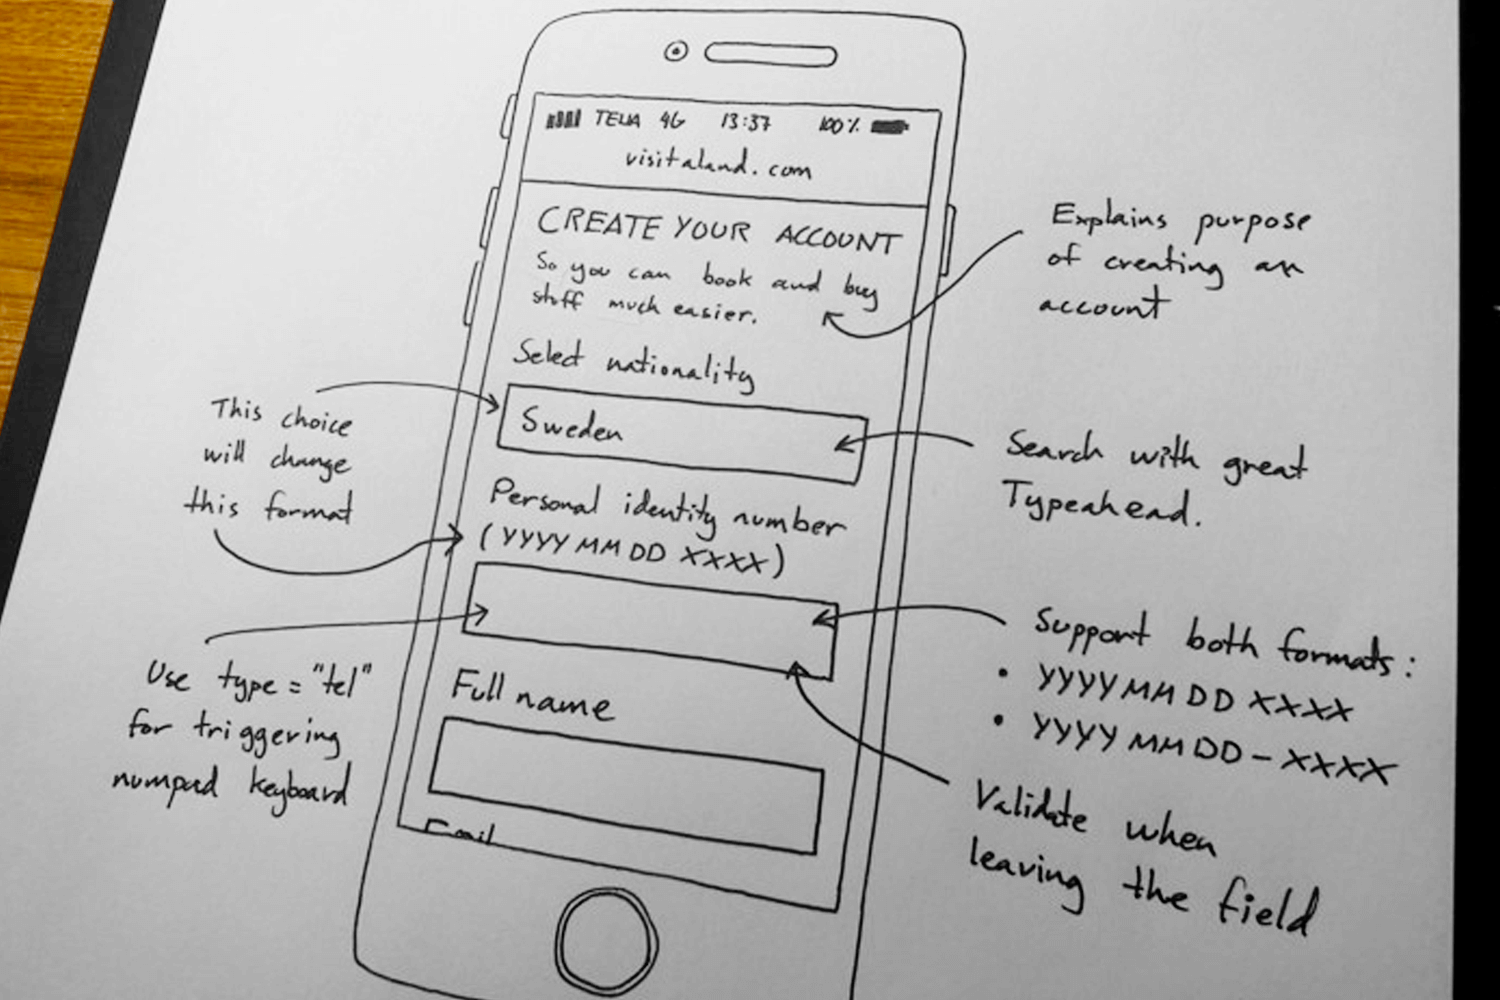 TELIA 4G 13:37 100%
visitaland.com
CREATE YOUR ACCOUNT
So you can book and buy
stuff much easier.
Select nationality
Sweden
Personal identity number
(YYYY MM DD XXXX)
Full name
Email
Explains purpose
of creating an
account
This choice
will change
this format
Search with great
Typeahead.
Use type="tel"
for triggering
numpad keyboard
Support both formats:
• YYYY MM DD XXXX
• YYYY MM DD-XXXX
Validate when
leaving the field